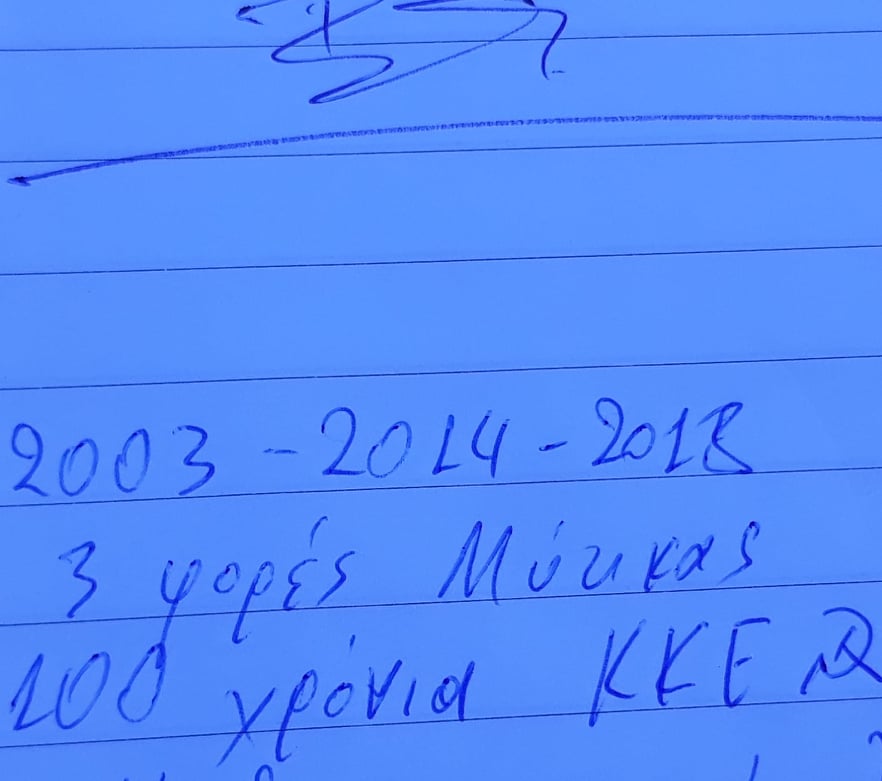 2003 - 2014 - 2018
3 φορές Μύτικας
100 χρόνια ΚΚΕ ☭